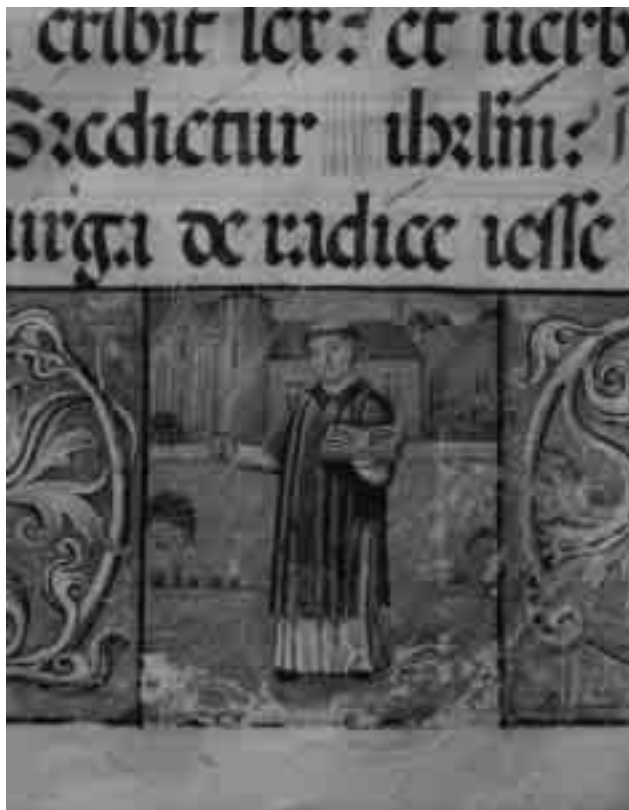 exibit lex: et uerb
Egredietur ihrlm:
uirga de radice iesse